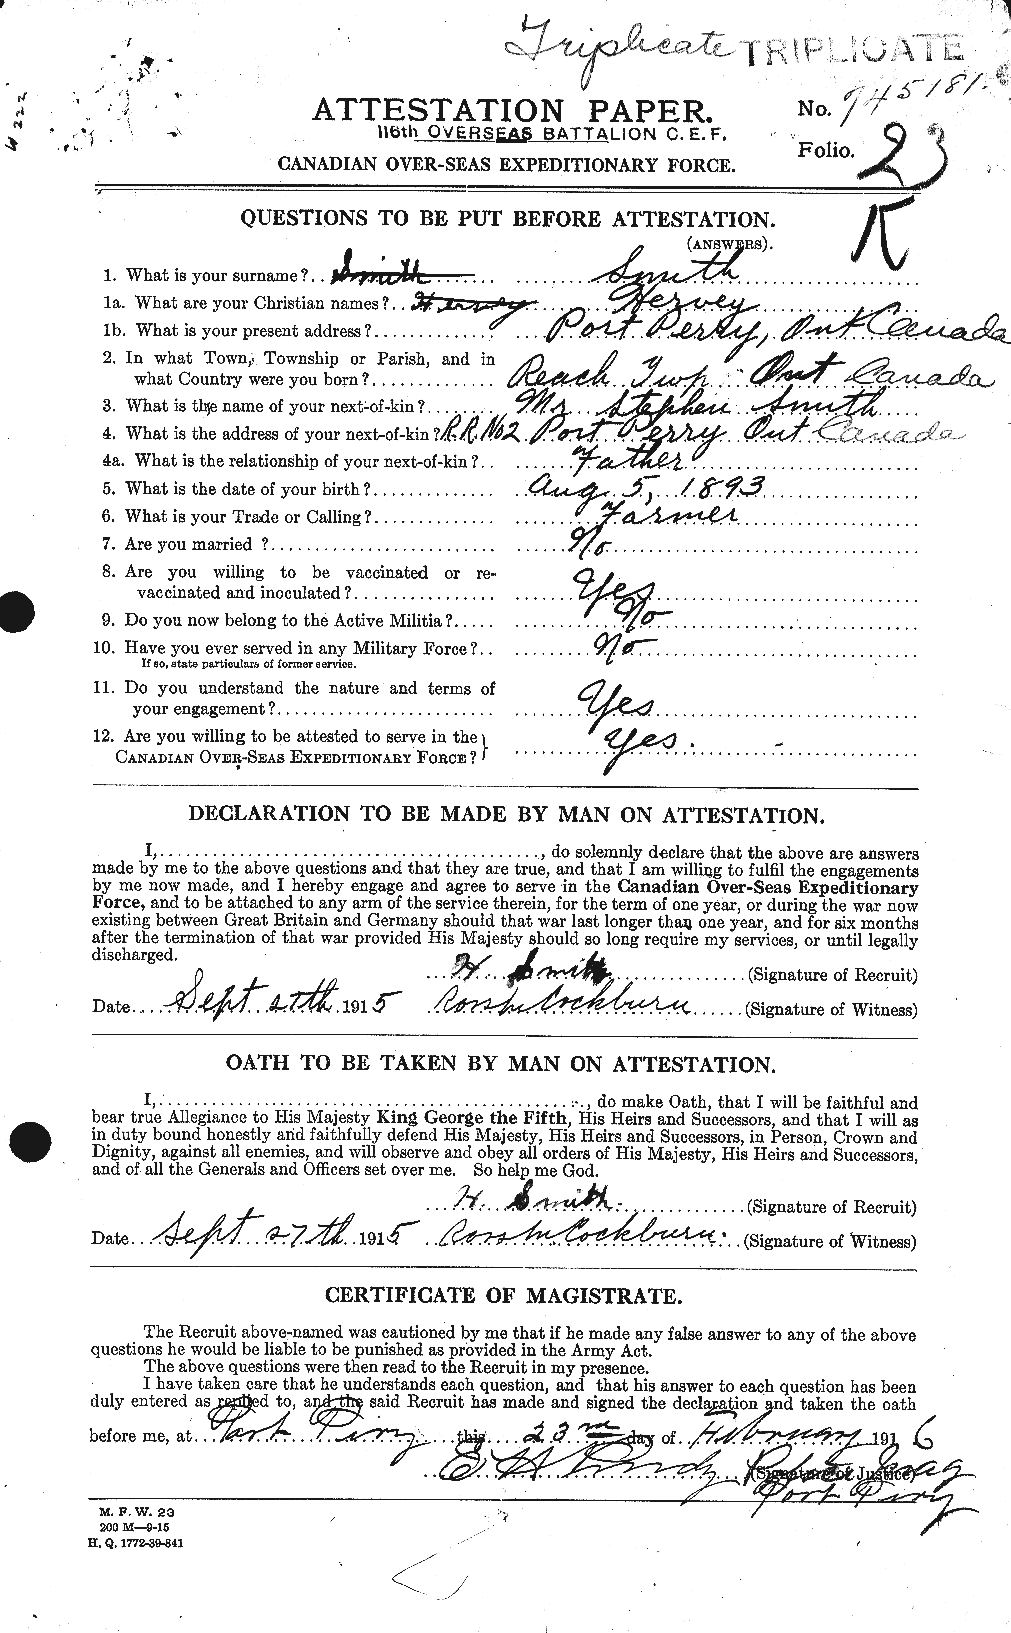 Triplicate TRIPLICATE
ATTESTATION PAPER. No. 745181.
116th OVERSEAS BATTALION C.E.F.
Folio. 23
CANADIAN OVER-SEAS EXPEDITIONARY FORCE.
QUESTIONS TO BE PUT BEFORE ATTESTATION.
(ANSWERS).
1. What is your surname?.. Smith Smith
1a. What are your Christian names?.. Hervey Hervey
1b. What is your present address? Port Perry, Ont Canada
2. In what Town, Township or Parish, and in
what Country were you born? Reach Twp Ont Canada
3. What is the name of your next-of-kin? Mr Stephen Smith
4. What is the address of your next-of-kin? R.R. No2 Port Perry Ont Canada
4a. What is the relationship of your next-of-kin?.. Father
5. What is the date of your birth? Aug 5, 1893
6. What is your Trade or Calling? Farmer
7. Are you married ? No
8. Are you willing to be vaccinated or re-
vaccinated and inoculated? Yes
9. Do you now belong to the Active Militia? No
10. Have you ever served in any Military Force?.. No
If so, state particulars of former service.
11. Do you understand the nature and terms of
your engagement? Yes
12. Are you willing to be attested to serve in the
CANADIAN OVER-SEAS EXPEDITIONARY FORCE? Yes.
DECLARATION TO BE MADE BY MAN ON ATTESTATION.
I, ........................................, do solemnly declare that the above are answers
made by me to the above questions and that they are true, and that I am willing to fulfil the engagements
by me now made, and I hereby engage and agree to serve in the Canadian Over-Seas Expeditionary
Force, and to be attached to any arm of the service therein, for the term of one year, or during the war now
existing between Great Britain and Germany should that war last longer than one year, and for six months
after the termination of that war provided His Majesty should so long require my services, or until legally
discharged.
H Smith (Signature of Recruit)
Date Sept 27th 1915 Cockburn (Signature of Witness)
OATH TO BE TAKEN BY MAN ON ATTESTATION.
I, ........................................, do make Oath, that I will be faithful and
bear true Allegiance to His Majesty King George the Fifth, His Heirs and Successors, and that I will as
in duty bound honestly and faithfully defend His Majesty, His Heirs and Successors, in Person, Crown and
Dignity, against all enemies, and will observe and obey all orders of His Majesty, His Heirs and Successors,
and of all the Generals and Officers set over me. So help me God.
H. Smith. (Signature of Recruit)
Date Sept 27th 1915 Cockburn. (Signature of Witness)
CERTIFICATE OF MAGISTRATE.
The Recruit above-named was cautioned by me that if he made any false answer to any of the above
questions he would be liable to be punished as provided in the Army Act.
The above questions were then read to the Recruit in my presence.
I have taken care that he understands each question, and that his answer to each question has been
duly entered as replied to, and the said Recruit has made and signed the declaration and taken the oath
before me, at Port Perry this 23rd day of February 1916
E H Purdy (Signature of Justice)
Port Perry
M. F. W. 23
200 M—9-15
H. Q. 1772-39-841